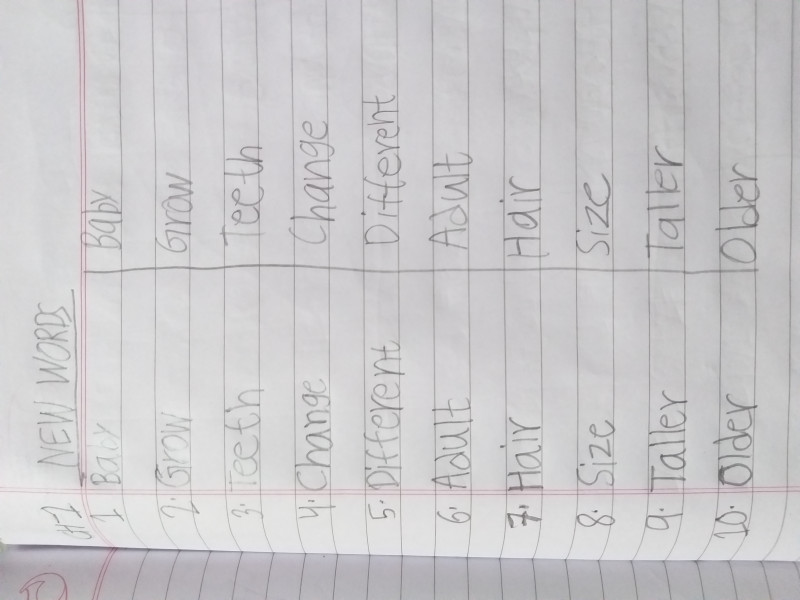 #1 NEW WORDS
1 Baby Baby
2. Grow Grow
3. Teeth Teeth
4. Change Change
5. Different Different
6. Adult Adult
7. Hair Hair
8. Size Size
9. Taller Taller
10. Older Older